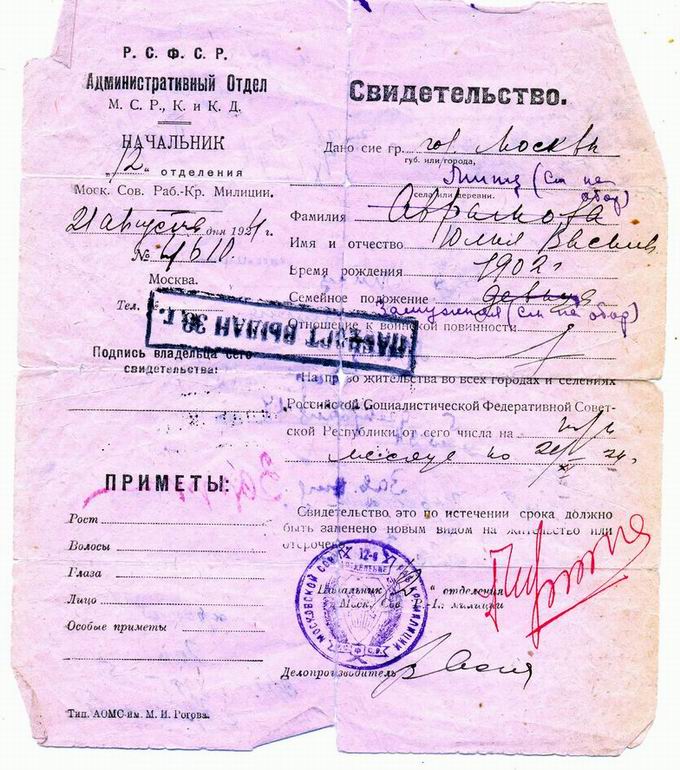 Р. С. Ф. С. Р.
Административный Отдел
М. С. Р., К. и К. Д.
НАЧАЛЬНИК
„12“ отделения
Моск. Сов. Раб.-Кр. Милиции.
21 августа дня 1924 г.
№ 4610
Москва.
Тел. №
ПАЧПОРТ ВЫДАН 33 г.
Подпись владельца сего
свидетельства:
ПРИМЕТЫ:
Рост
Волосы
Глаза
Лицо
Особые приметы
Тип. АОМС им. М. И. Рогова.
Свидетельство.
Дано сие гр. гор. Москвы
губ. или города,
(см на обор)
села или деревни.
Фамилия Абрамова
Имя и отчество Юлия
Время рождения 1902 г
Семейное положение девица
Замужняя (см на обор)
Отношение к воинской повинности
На право жительства во всех городах и селениях
Российской Социалистической Федеративной Совет-
ской Республики от сего числа на три
месяца по 21/XI 24.
Свидетельство это по истечении срока должно
быть заменено новым видом на жительство или
отсрочено
Начальник „12“ отделения
Моск. Сов. Р.-К. милиции
МОСКОВСКОЙ СОВ. РАБ. КР. МИЛИЦИИ
12-е ОТДЕЛЕНИЕ
Р.С.Ф.С.Р.
Делопроизводитель